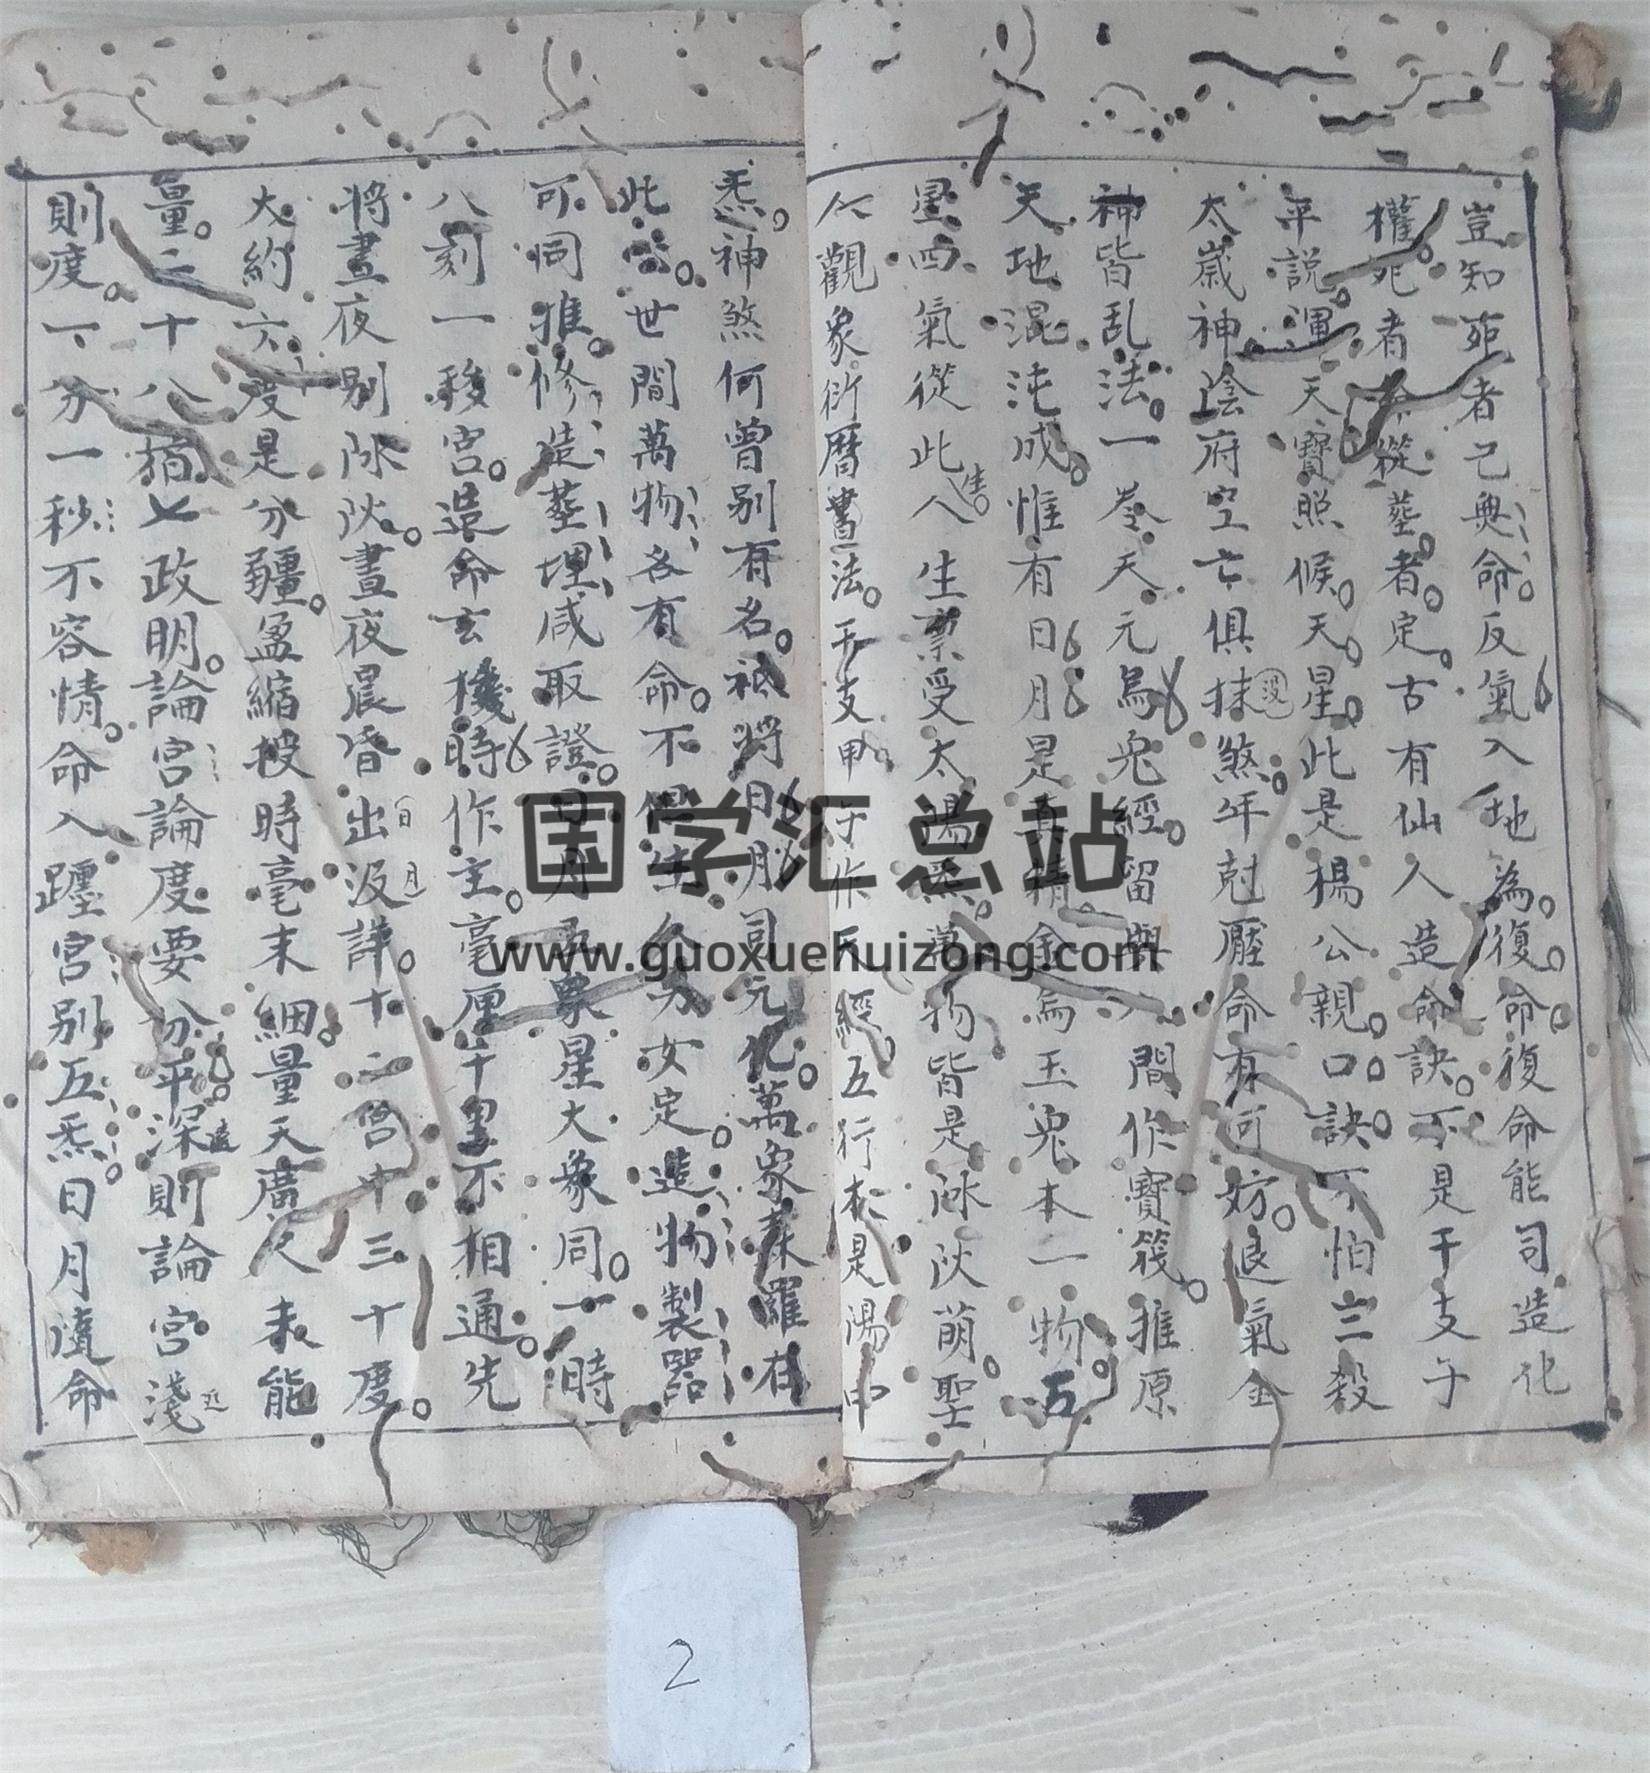 豈知死者已無命反氣入地為復命復命能司造化
權死者命從塟者定古有仙人造命訣不是干支子
平説運天寶照候天星此是楊公親口訣不怕三殺
太歲神陰府空亡俱抹煞年尅壓命有何妨退氣金
神皆乱法一卷天元烏兔經留與人間作寶筏推原
天地混沌成惟有日月是真精金烏玉兔本一物五
星四氣從此生人生禀受太陽炁萬物皆是陰陽萌聖
人觀象衍曆書法干支甲子作天經五行本是陽中
炁神煞何曾别有名祗將日月司元化萬象森羅在
此世間萬物各有命不但生人男女定造物製器
可同推修造塟埋咸取證日月五星大象同一時
八刻一移宮造命玄機時作主毫厘千里不相通先
將晝夜别陰陽晝夜晨昏出没詳十二宮中三十度
大約六度是分疆盈縮授時毫末細量天廣尺未能
量二十八宿七政明論宮論度要分平深則論宮淺
則度一分一秒不容情命入躔宮别五炁日月隨命
国学汇总站
www.guoxuehuizong.com
2